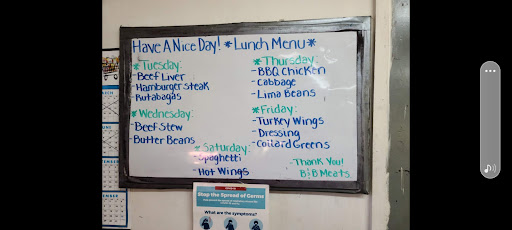 Have A Nice Day! *Lunch Menu*
*Tuesday:
-Beef Liver
-Hamburger steak
-Rutabagas
*Wednesday:
-Beef Stew
-Butter Beans
*Thursday:
-BBQ Chicken
-Cabbage
-Lima Beans
*Friday:
-Turkey Wings
-Dressing
-Collard Greens
*Saturday:
-Spaghetti
-Hot Wings
-Thank You!
B&B Meats
Stop the Spread of Germs
What are the symptoms?